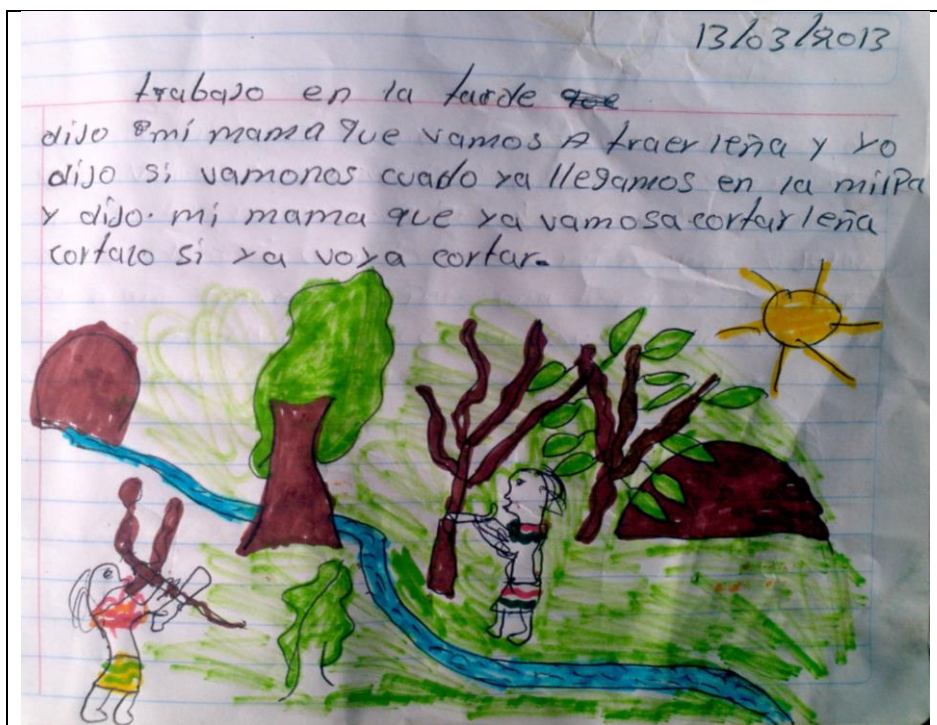 13/03/2013
trabajo en la tarde
dijo mi mama que vamos A traer leña y yo
dijo si vamonos cuado ya llegamos en la milpa
y dijo. mi mama que ya vamosa cortar leña
cortalo si ya voya cortar.